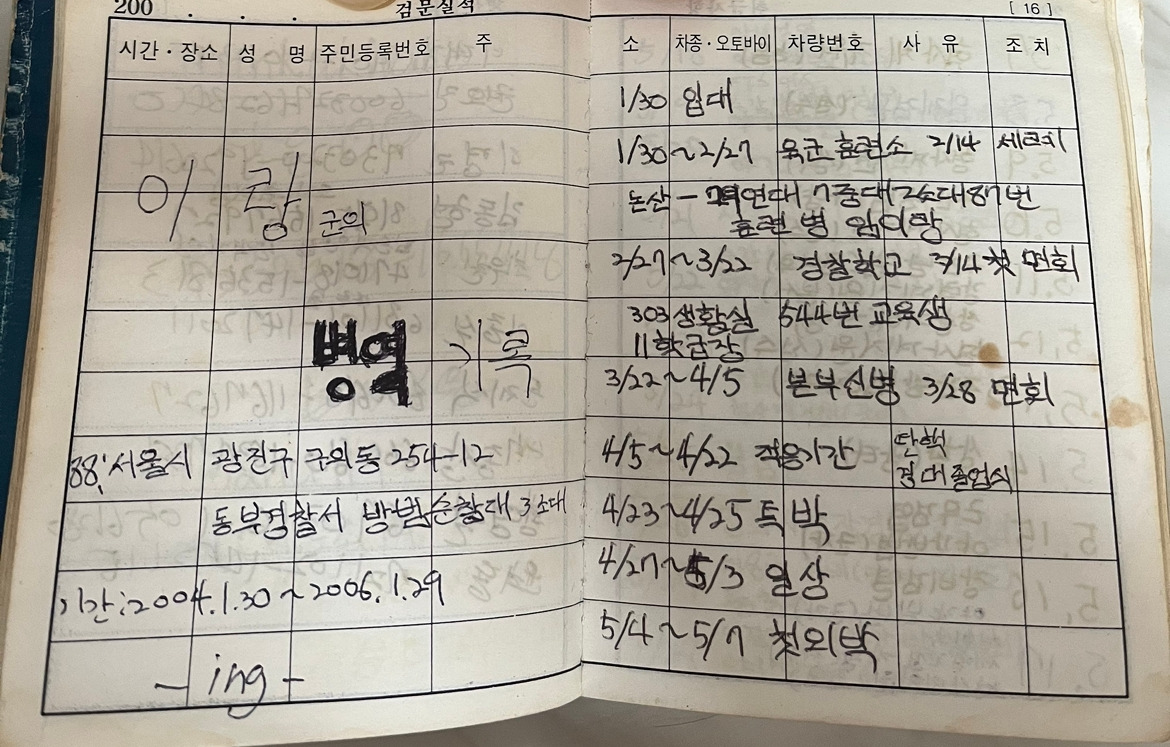 200 . . . 검문실적 [ 16 ]
시간·장소 성 명 주민등록번호 주 소 차종·오토바이 차량번호 사 유 조 치
이 랑 군의
병영 기록
88; 서울시 광진구 구의동 254-12
동부경찰서 방범순찰대 3소대
기간:2004.1.30 ~ 2006.1.29
- ing -
1/30 입대
1/30 ~ 2/27 육군훈련소 2/14
논산 - 연대 7중대 2소대 87번
훈련병
2/27 ~ 3/22 경찰학교 3/14 첫 면회
303 생활실 544번 교육생
11학급장
3/22 ~ 4/5 본부신병 3/28 면회
4/5 ~ 4/22 적응기간 탄핵
경대졸업식
4/23 ~ 4/25 특박
4/27 ~ 5/3 일상
5/4 ~ 5/7 첫외박